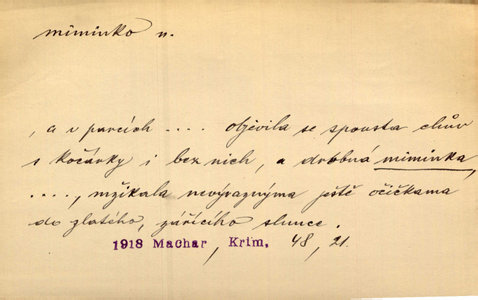 miminko n.
, a v parcích .... objevila se spousta chův
s kočárky i bez nich, a drobná miminka,
...., mžikala nevýraznýma ještě očičkama
do zlatého, zářícího slunce.
1918 Machar, Krim, 48, 21.